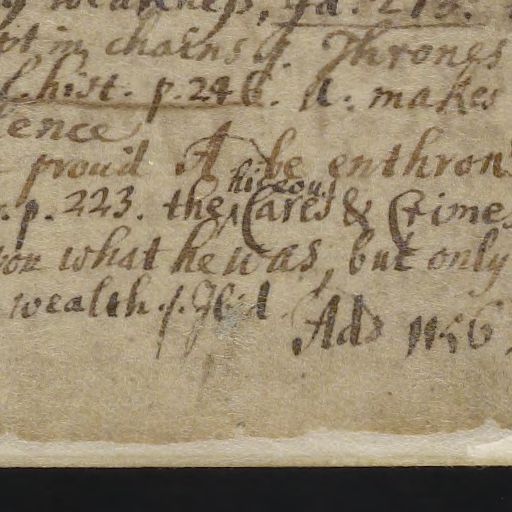 weakness, Ib. 213.
pt in chains & Thrones
Chist. p. 246. it: makes
ence
proud A be enthron'
p. 223. the hideous Cares & Crimes
you what he was, but only
wealth. p. Ibid
Ads 1156